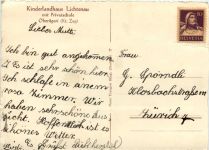 Kinderlandhaus Lichtenau
mit Privatschule
Oberägeri (Kt. Zug)
Lieber Mutti.
Ich bin gut angekommen
Es ist sehr schön hier.
Ich schlafe in einem
rosa Zimmer. Wir
haben sehr schöne Aus
sicht. Hoffentlich ist es
schönes Wetter
Es grüsst
Frau
G.
Zürich 7